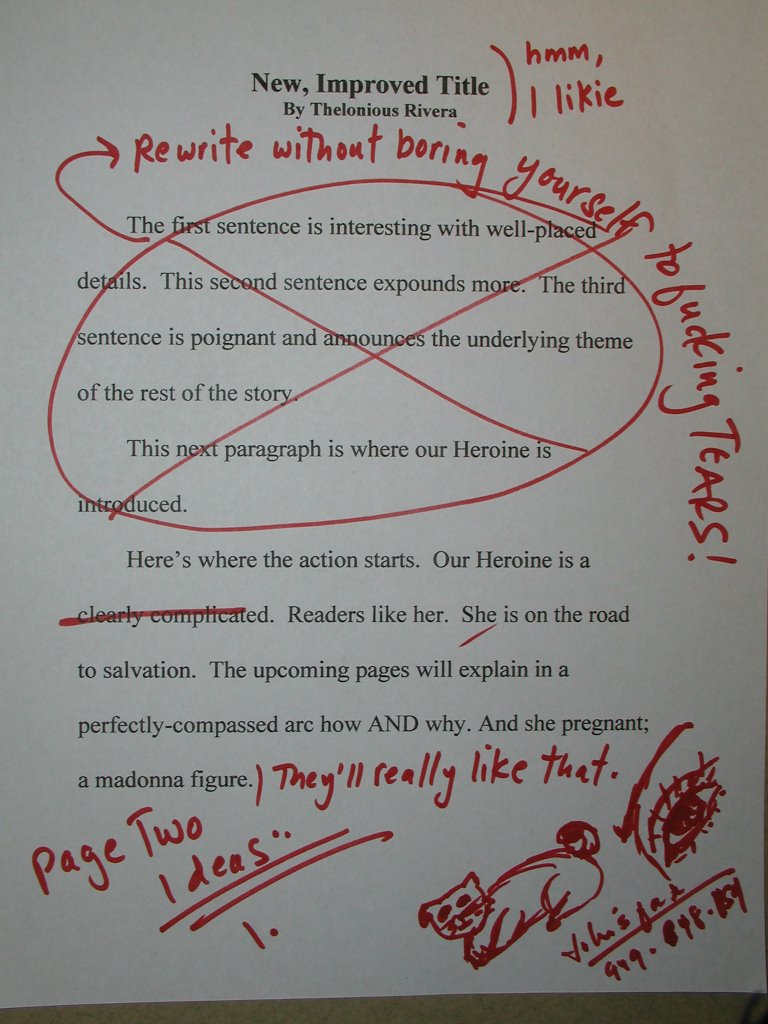 New, Improved Title
By Thelonious Rivera
hmm,
I likie
Rewrite without boring yourself to fucking TEARS!
The first sentence is interesting with well-placed
details. This second sentence expounds more. The third
sentence is poignant and announces the underlying theme
of the rest of the story.
This next paragraph is where our Heroine is
introduced.
Here's where the action starts. Our Heroine is a
clearly complicated. Readers like her. She is on the road
to salvation. The upcoming pages will explain in a
perfectly-compassed arc how AND why. And she pregnant;
a madonna figure.
They'll really like that.
page Two
Ideas..
1.